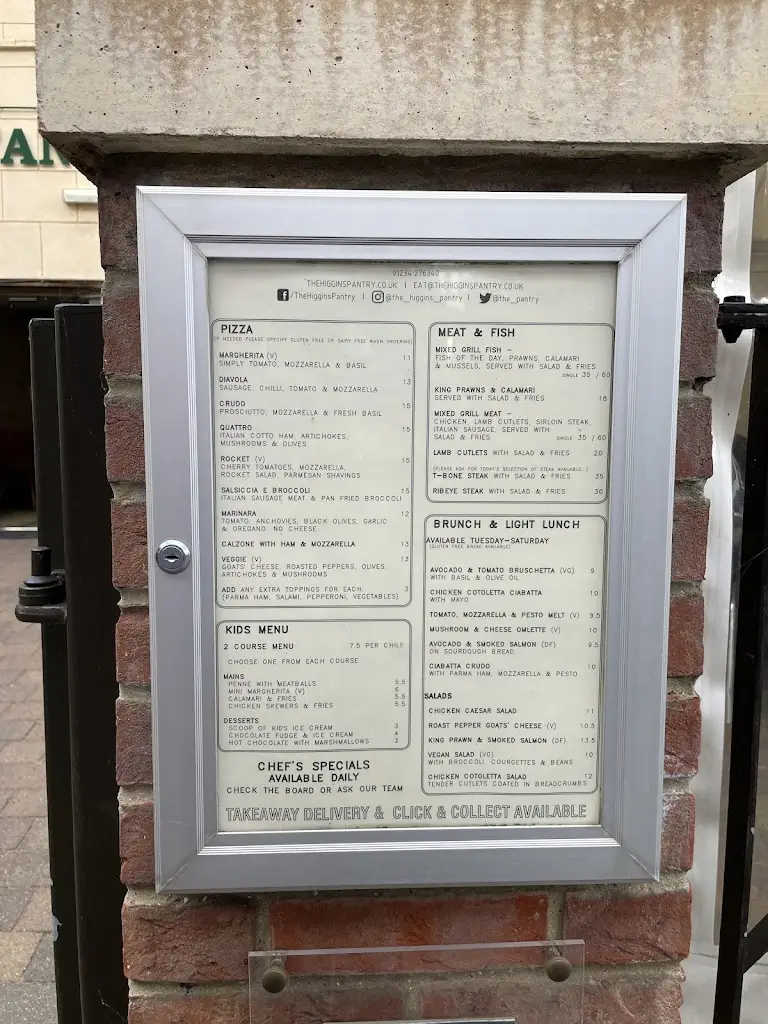 AN
01234 276340
THEHIGGINSPANTRY.CO.UK | EAT@THEHIGGINSPANTRY.CO.UK
/TheHigginsPantry | @the_higgins_pantry | @the_pantry
PIZZA
IF NEEDED PLEASE SPECIFY GLUTEN FREE OR DAIRY FREE WHEN ORDERING
MARGHERITA (V) 11
SIMPLY TOMATO, MOZZARELLA & BASIL
DIAVOLA 13
SAUSAGE, CHILLI, TOMATO & MOZZARELLA
CRUDO 15
PROSCIUTTO, MOZZARELLA & FRESH BASIL
QUATTRO 15
ITALIAN COTTO HAM, ARTICHOKES,
MUSHROOMS & OLIVES
ROCKET (V) 15
CHERRY TOMATOES, MOZZARELLA,
ROCKET SALAD, PARMESAN SHAVINGS
SALSICCIA E BROCCOLI 15
ITALIAN SAUSAGE MEAT & PAN FRIED BROCCOLI
MARINARA 12
TOMATO, ANCHOVIES, BLACK OLIVES, GARLIC
& OREGANO NO CHEESE
CALZONE WITH HAM & MOZZARELLA 13
VEGGIE (V) 13
GOATS' CHEESE, ROASTED PEPPERS, OLIVES,
ARTICHOKES & MUSHROOMS
ADD ANY EXTRA TOPPINGS FOR EACH 3
(PARMA HAM, SALAMI, PEPPERONI, VEGETABLES)
KIDS MENU
2 COURSE MENU 7.5 PER CHILD
CHOOSE ONE FROM EACH COURSE
MAINS
PENNE WITH MEATBALLS 5.5
MINI MARGHERITA (V) 6
CALAMARI & FRIES 5.5
CHICKEN SKEWERS & FRIES 5.5
DESSERTS
SCOOP OF KIDS ICE CREAM 3
CHOCOLATE FUDGE & ICE CREAM 4
HOT CHOCOLATE WITH MARSHMALLOWS 3
CHEF'S SPECIALS
AVAILABLE DAILY
CHECK THE BOARD OR ASK OUR TEAM
MEAT & FISH
MIXED GRILL FISH –
FISH OF THE DAY, PRAWNS, CALAMARI
& MUSSELS, SERVED WITH SALAD & FRIES
SINGLE 35 / 60
KING PRAWNS & CALAMARI
SERVED WITH SALAD & FRIES 18
MIXED GRILL MEAT –
CHICKEN, LAMB CUTLETS, SIRLOIN STEAK,
ITALIAN SAUSAGE, SERVED WITH
SALAD & FRIES SINGLE 35 / 60
LAMB CUTLETS WITH SALAD & FRIES 20
(PLEASE ASK FOR TODAY'S SELECTION OF STEAK AVAILABLE.)
T-BONE STEAK WITH SALAD & FRIES 35
RIBEYE STEAK WITH SALAD & FRIES 30
BRUNCH & LIGHT LUNCH
AVAILABLE TUESDAY-SATURDAY
(GLUTEN FREE BREAD AVAILABLE)
AVOCADO & TOMATO BRUSCHETTA (VG) 9
WITH BASIL & OLIVE OIL
CHICKEN COTOLETTA CIABATTA 10
WITH MAYO
TOMATO, MOZZARELLA & PESTO MELT (V) 9.5
MUSHROOM & CHEESE OMLETTE (V) 10
AVOCADO & SMOKED SALMON (DF) 9.5
ON SOURDOUGH BREAD
CIABATTA CRUDO 10
WITH PARMA HAM, MOZZARELLA & PESTO
SALADS
CHICKEN CAESAR SALAD 11
ROAST PEPPER GOATS' CHEESE (V) 10.5
KING PRAWN & SMOKED SALMON (DF) 13.5
VEGAN SALAD (VG) 10
WITH BROCCOLI, COURGETTES & BEANS
CHICKEN COTOLETTA SALAD 12
TENDER CUTLETS COATED IN BREADCRUMBS
TAKEAWAY DELIVERY & CLICK & COLLECT AVAILABLE